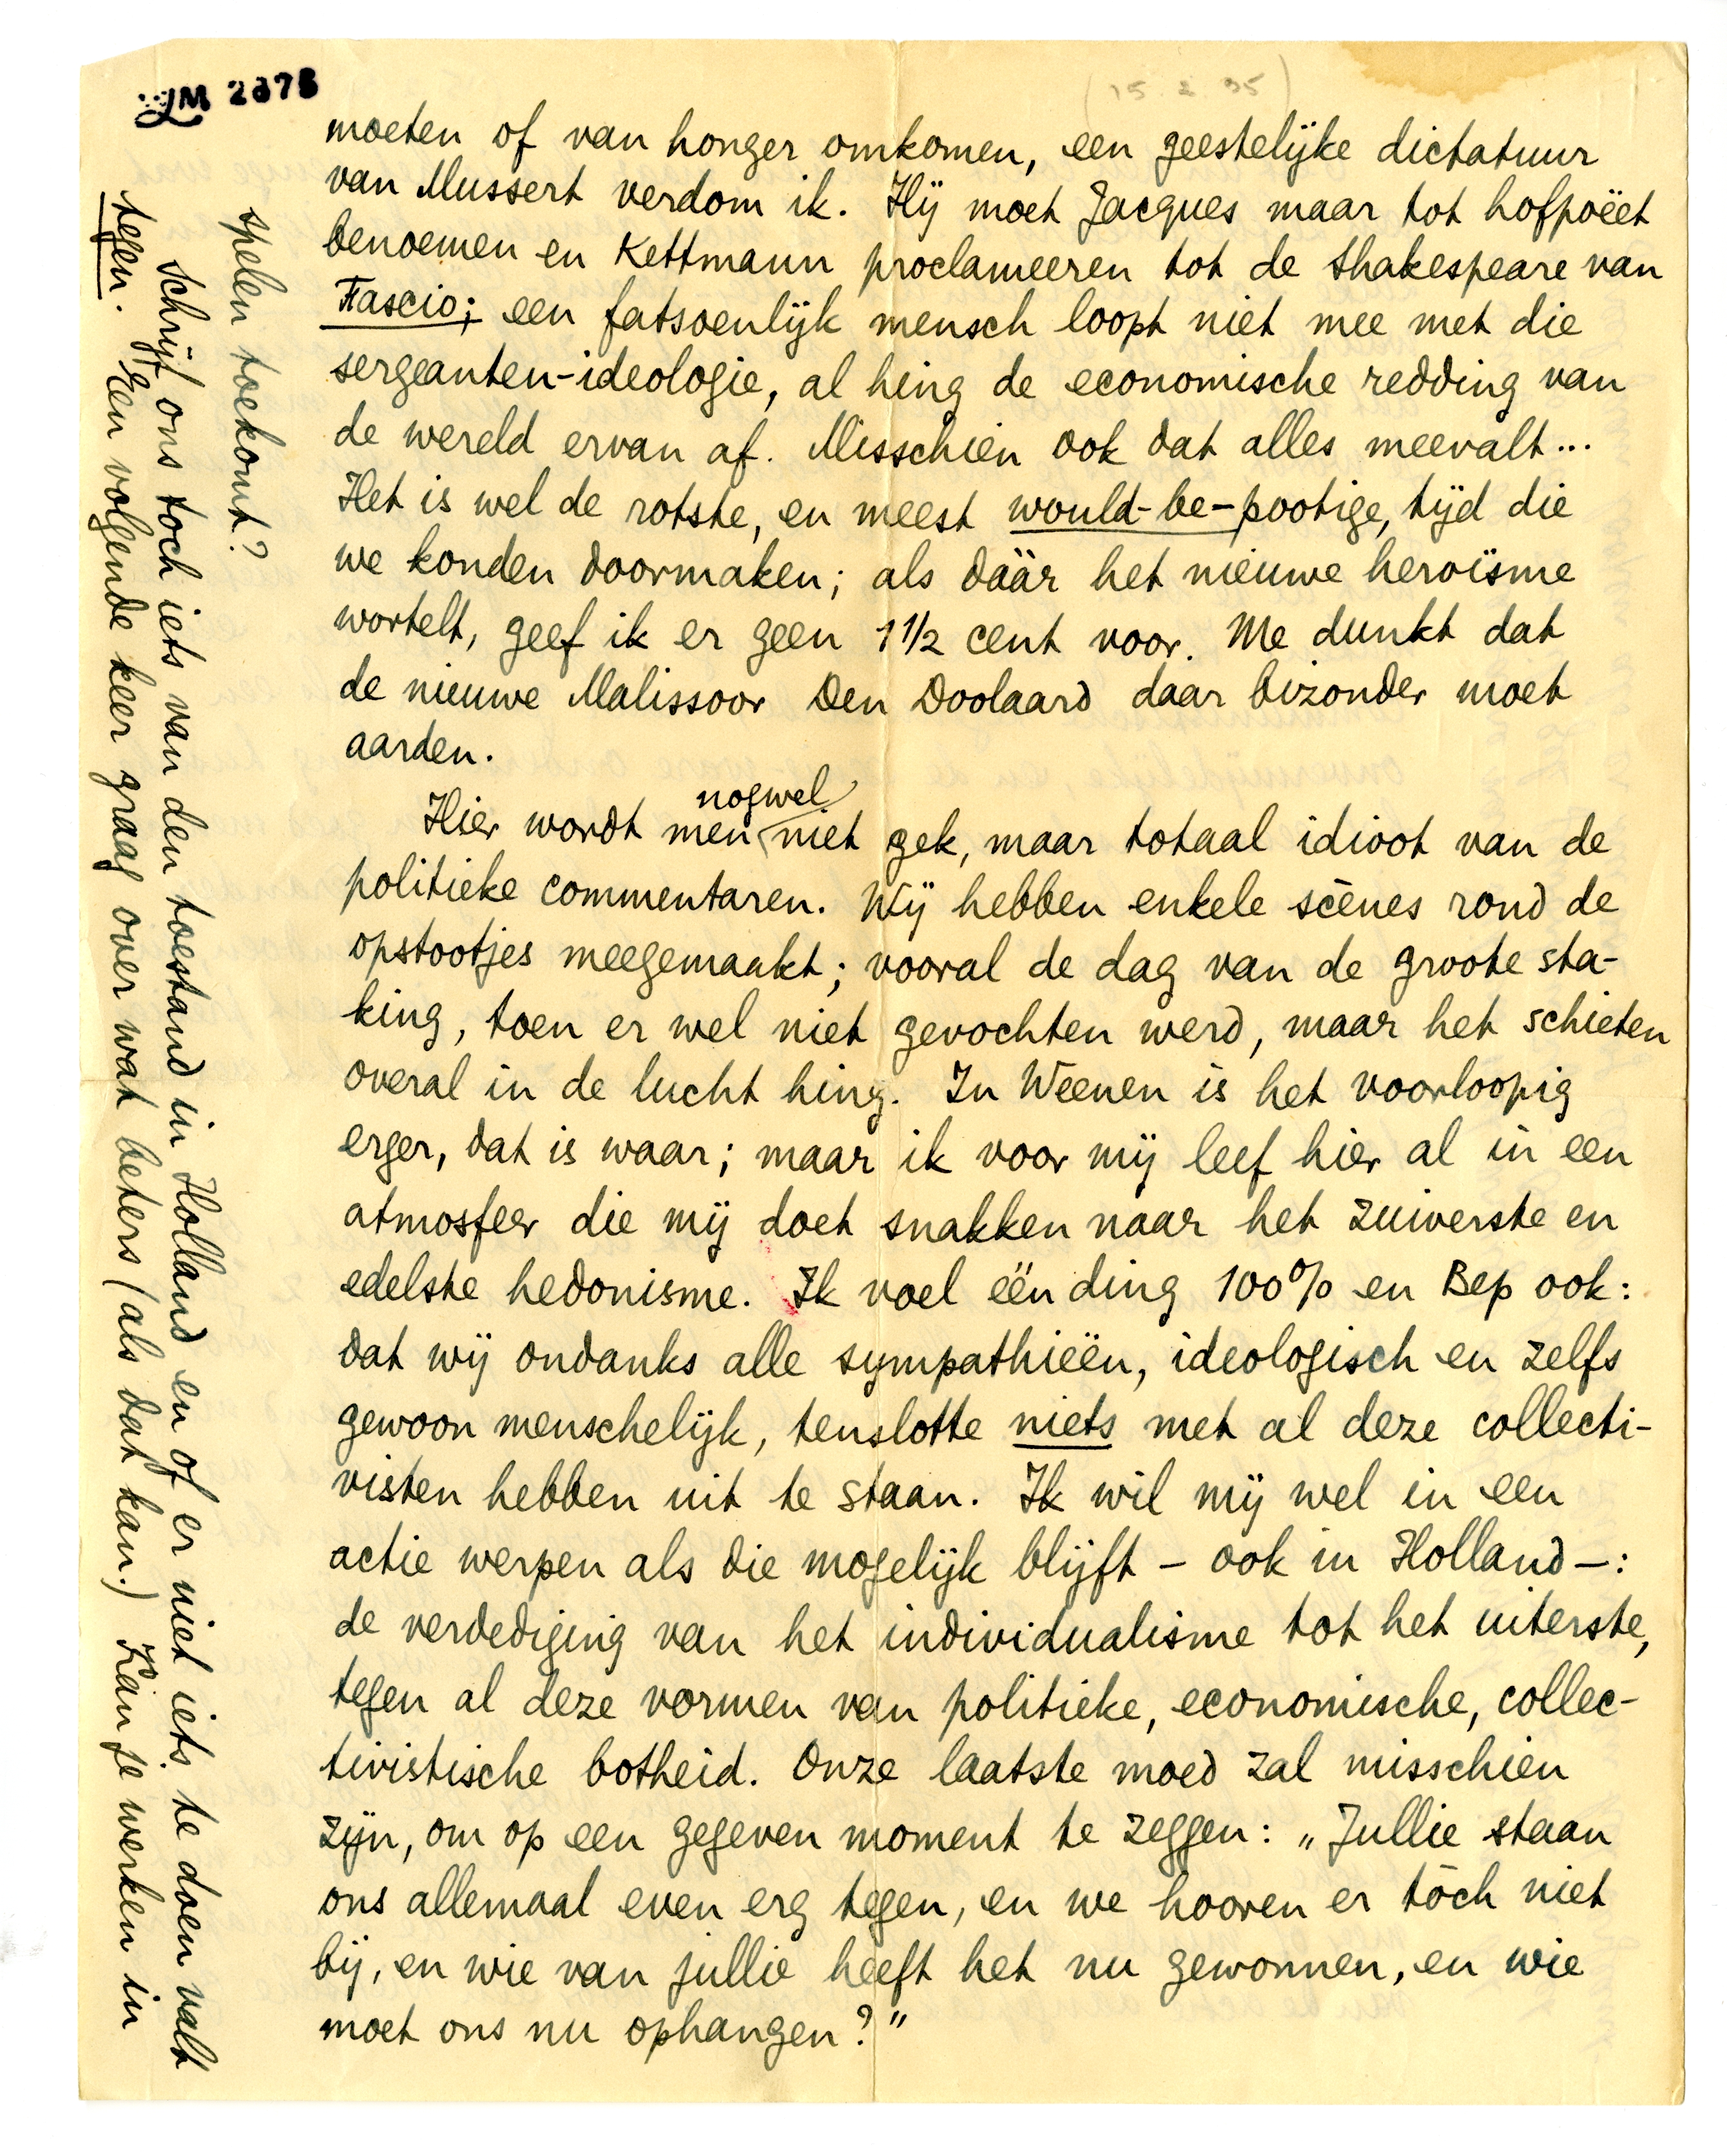 LM 2878
(15.2.35)
moeten of van honger omkomen, een geestelijke dictatuur
van Mussert verdom ik. Hij moet Jacques maar tot hofpoëet
benoemen en Kettmann proclameeren tot de Shakespeare van
Fascio; een fatsoenlijk mensch loopt niet mee met die
sergeanten-ideologie, al hing de economische redding van
de wereld ervan af. Misschien ook dat alles meevalt...
Het is wel de rotste, en meest would-be-pootige, tijd die
we konden doormaken; als dáár het nieuwe heroïsme
wortelt, geef ik er geen 1 1/2 cent voor. Me dunkt dat
de nieuwe Malissoor Den Doolaard daar bizonder moet
aarden.
Hier wordt men nogwel niet gek, maar totaal idioot van de
politieke commentaren. Wij hebben enkele scènes rond de
opstootjes meegemaakt; vooral de dag van de groote sta-
king, toen er wel niet gevochten werd, maar het schieten
overal in de lucht hing. In Weenen is het voorloopig
erger, dat is waar; maar ik voor mij leef hier al in een
atmosfeer die mij doet snakken naar het zuiverste en
edelste hedonisme. Ik voel één ding 100% en Bep ook:
dat wij ondanks alle sympathieën, ideologisch en zelfs
gewoon menschelijk, tenslotte niets met al deze collecti-
visten hebben uit te staan. Ik wil mij wel in een
actie werpen als die mogelijk blijft – ook in Holland –:
de verdediging van het individualisme tot het uiterste,
tegen al deze vormen van politieke, economische, collec-
tivistische botheid. Onze laatste moed zal misschien
zijn, om op een gegeven moment te zeggen: „Jullie staan
ons allemaal even erg tegen, en we hooren er tòch niet
bij, en wie van jullie heeft het nu gewonnen, en wie
moet ons nu ophangen?”
spelen toekomt?
Schrijf ons toch iets van den toestand in Holland en of er niet iets te doen valt
tegen. Een volgende keer graag over wat beters (als dat kan.) Kàn je werken in